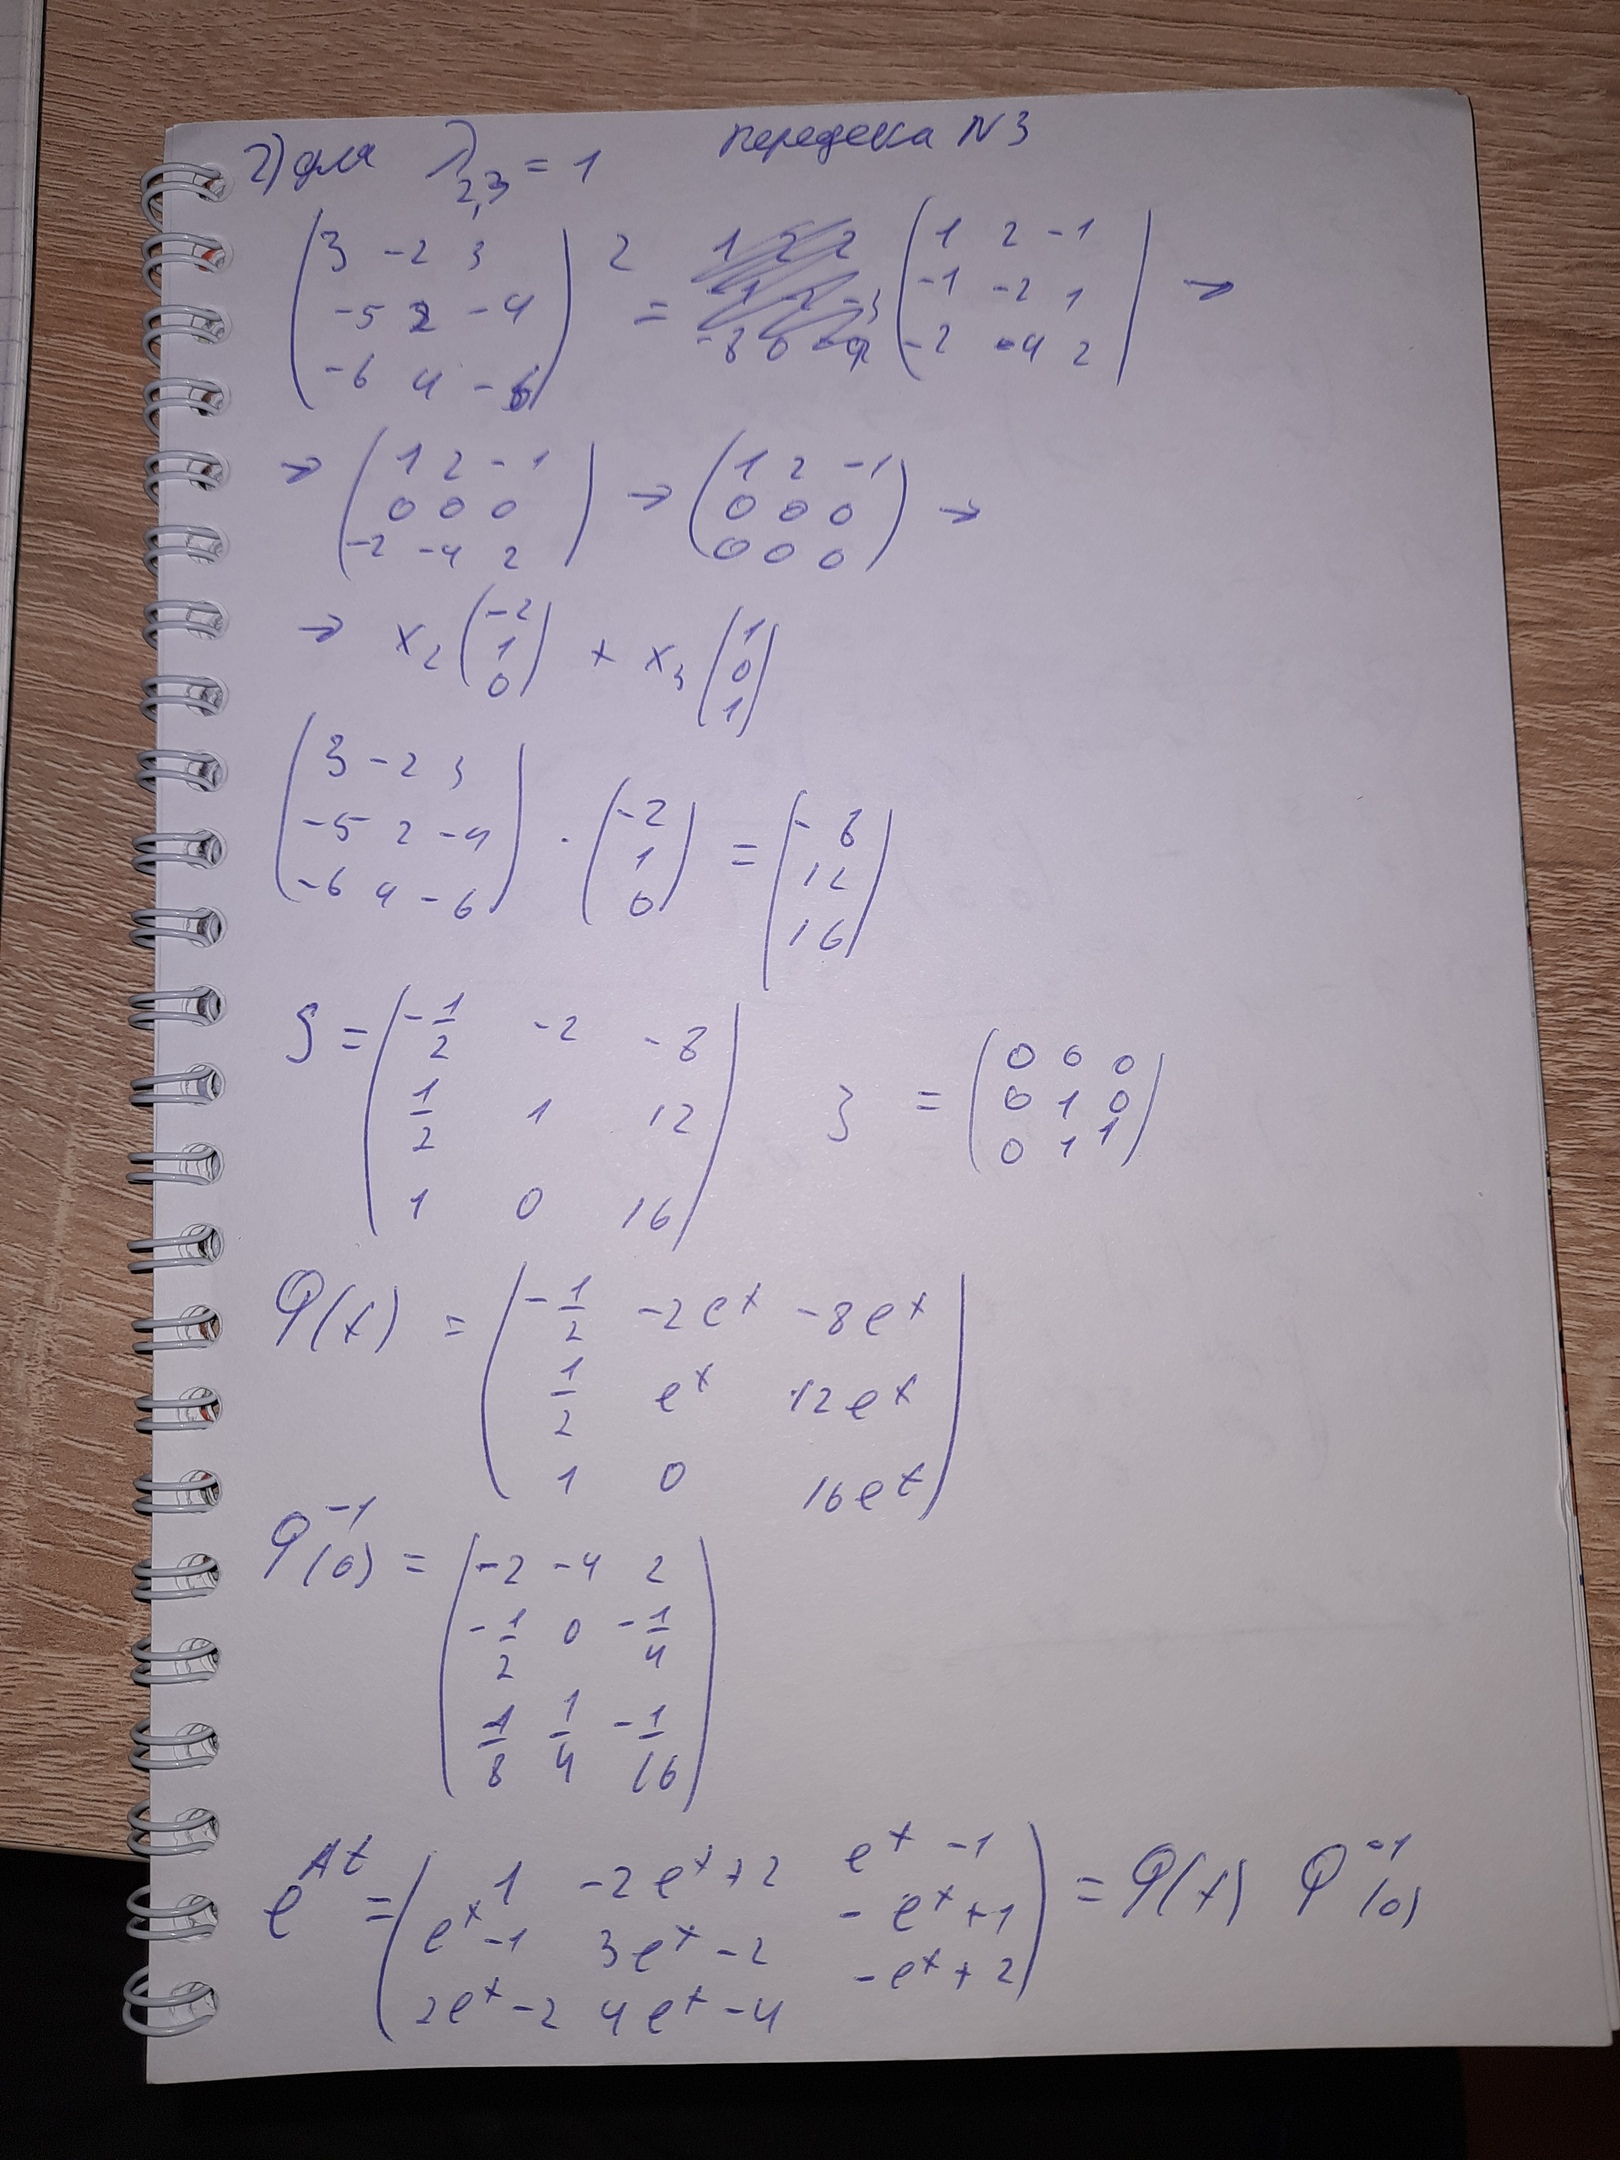 2) для λ₂,₃ = 1 переделка N 3
( 3 -2 3 ; -5 2 -4 ; -6 4 -6 )² = ( 1 2 -1 ; -1 -2 1 ; -2 -4 2 ) →
→ ( 1 2 -1 ; 0 0 0 ; -2 -4 2 ) → ( 1 2 -1 ; 0 0 0 ; 0 0 0 ) →
→ x₂ ( -2 ; 1 ; 0 ) + x₃ ( 1 ; 0 ; 1 )
( 3 -2 3 ; -5 2 -4 ; -6 4 -6 ) · ( -2 ; 1 ; 0 ) = ( -8 ; 12 ; 16 )
S = ( -1/2 -2 -8 ; 1/2 1 12 ; 1 0 16 ) J = ( 0 0 0 ; 0 1 0 ; 0 1 1 )
φ(t) = ( -1/2 -2e^t -8e^t ; 1/2 e^t 12e^t ; 1 0 16e^t )
φ⁻¹(0) = ( -2 -4 2 ; -1/2 0 -1/4 ; 1/8 1/4 -1/16 )
e^At = ( 1 -2e^t+2 e^t-1 ; e^t-1 3e^t-2 -e^t+1 ; 2e^t-2 4e^t-4 -e^t+2 ) = φ(t) φ⁻¹(0)